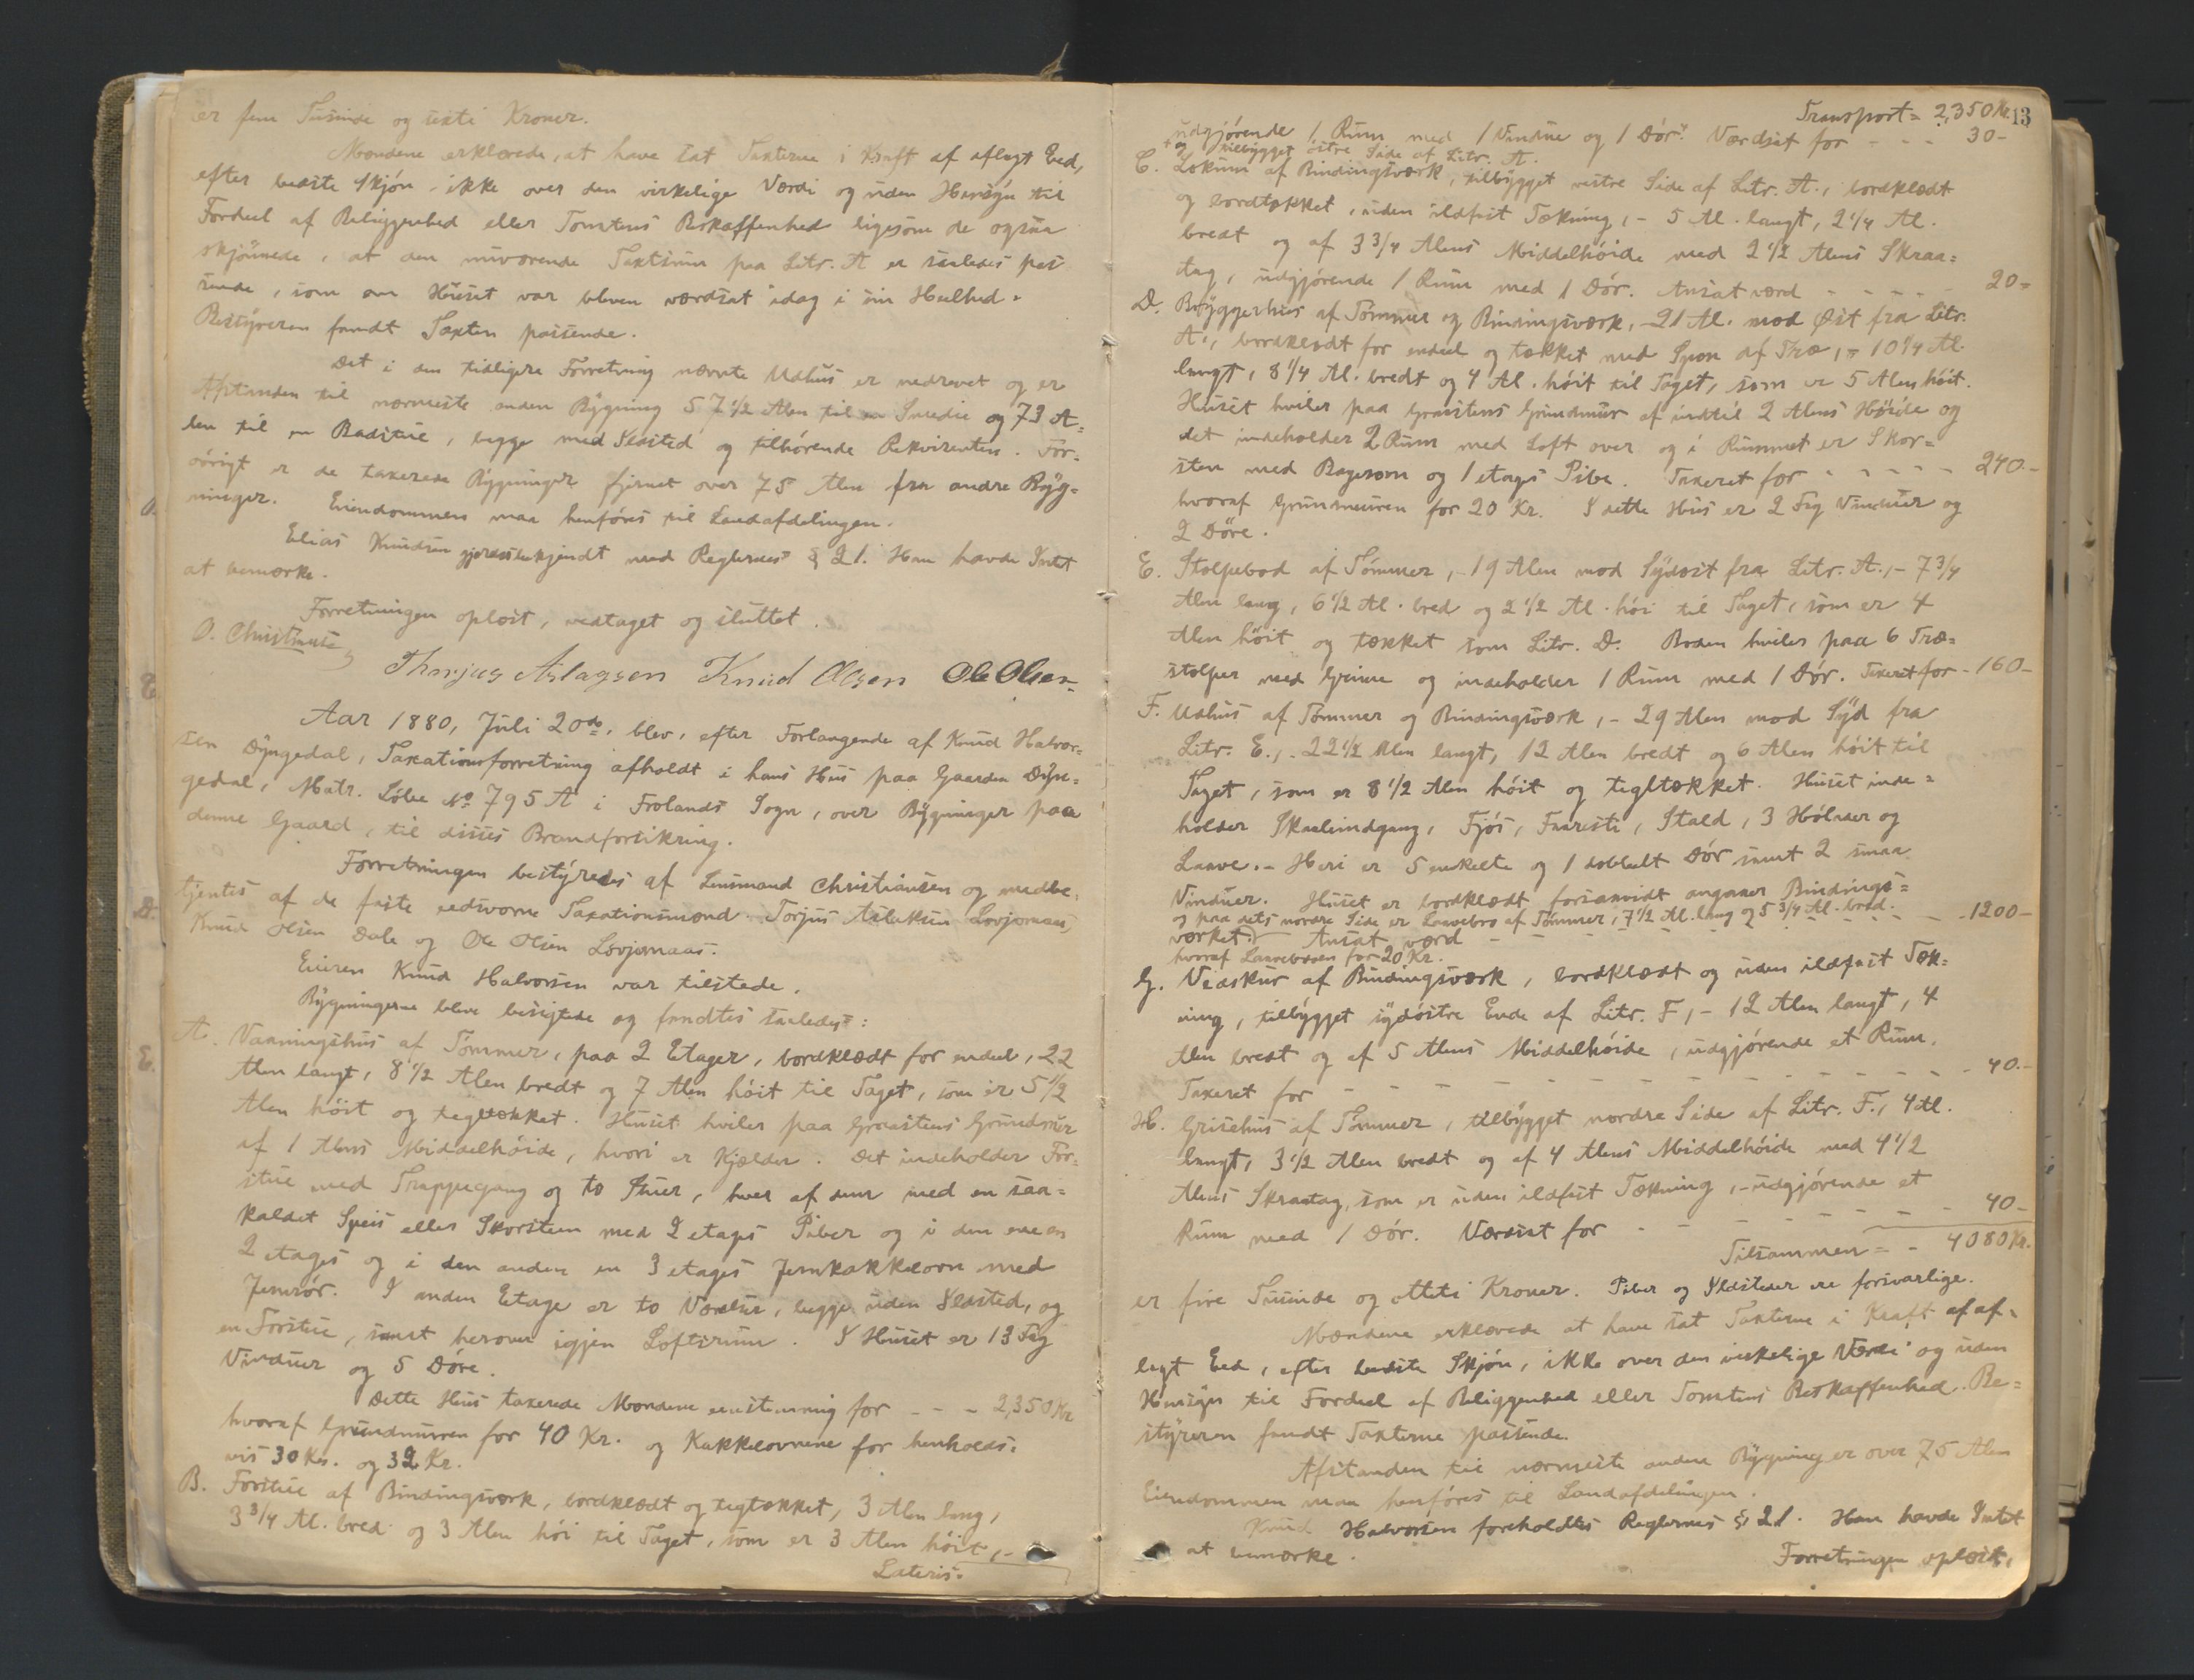 er fem Tusinde og sexti Kroner.
Mændene erklærede, at have sat Taxterne i Kraft af aflagt Eed,
efter bedste Skjøn, ikke over den virkelige Værdi og uden Hensyn til
Fordeel af Beliggenhed eller Tomtens Beskaffenhed ligesom de ogsaa
skjønnede, at den nuværende Taxtsum paa Litr. A er saaledes pas
sende, som om Huset var bleven værdsat idag i sin Heelhed.
Bestyreren fandt Taxten passende.
Det i den tidligere Forretning nævnte Udhus er nedrevet og er
Afstanden til nærmeste anden Bygning 57 1/2 Alen til en Smedie og 73 A=
len til en Badstue, begge med Ildsted og tilhørende Rekvirenten. For=
øvrigt er de taxerede Bygninger fjernet over 75 Alen fra andre Byg=
ninger. Eiendommen maa henføres til Landafdelingen.
Elias Knudsen gjordes bekjendt med Reglernes § 21. Han havde Intet
at bemærke.
Forretningen oplæst, vedtaget og sluttet.
O. Christiansen
Thorjus Aslagsen Knud Olsen Ole Olsen
Aar 1880, Juli 20de, blev, efter Forlangende af Knud Halvor=
sen Dyngedal, Taxationsforretning afholdt i hans Hus paa Gaarden Dyn=
gedal, Matr. Løbe No 795 A i Frolands Sogn, over Bygninger paa
denne Gaard, til disses Brandforsikring.
Forretningen bestyredes af Lensmand Christiansen og medbe=
tjentes af de faste edsvorne Taxationsmænd Torjus Aslaksen Lovjomaas,
Knud Olsen Dale og Ole Olsen Lovjomaas.
Eieren Knud Halvorsen var tilstede.
Bygningerne bleve besigtede og fandtes saaledes:
A. Vaaningshus af Tømmer, paa 2 Etager, bordklædt for endeel, 22
Alen langt, 8 1/2 Alen bredt og 7 Alen høit til Taget, som er 5 1/2
Alen høit og tegltækket. Huset hviler paa Graastens Grundmur
af 1 Alens Middelhøide, hvori er Kjælder. Det indeholder For=
stue med Trappegang og to Stuer, hver af dem med en saa=
kaldet Speis eller Skorsteen med 2 etages Piber og i den ene en
2 etages og i den anden en 3 etages Jernkakkelovn med
Jernrør. I anden Etage er to Værelser, begge uden Ildsted, og
en Forstue, samt herover igjen Loftsrum. I Huset er 13 Fag
Vinduer og 5 Døre.
Dette Huus taxerede Mændene eenstemmig for - - - 2,350 Kr
hvoraf Grundmuren for 40 Kr. og Kakkelovnene for henholds=
vis 30 Kr. og 32 Kr.
B. Forstue af Bindingsværk, bordklædt og tegltækket, 3 Alen lang,
3 3/4 Al. bred og 3 Alen høi til Taget, som er 3 Alen høit, -
Lateris.
13
Transport = 2,350 Kr.
udgjørende 1 Rum med 1 Vindue og 1 Dør. Værdsat for - - - 30 -
+ og tilbygget østre Side af Litr. A.
C. Lokum af Bindingsværk, tilbygget vestre Side af Litr. A., bordklædt
og bordtækket, uden ildfast Tækning, - 5 Al. langt, 2 1/4 Al.
bredt og af 3 3/4 Alens Middelhøide med 2 1/2 Alens Skraa=
tag, udgjørende 1 Rum med 1 Dør. Ansat værd - - - - - 20 =
D. Bryggerhus af Tømmer og Bindingsværk, - 21 Al. mod Øst fra Litr.
A., bordklædt for endeel og tækket med Spon af Træ, = 10 1/4 Al.
langt, 8 1/4 Al. bredt og 4 Al. høit til Taget, som er 5 Alen høit.
Huset hviler paa Graastens Grundmur af indtil 2 Alens Høide og
det indeholder 2 Rum med Loft over og i Rummet er Skor=
sten med Bagerovn og 1 etages Pibe. Taxeret for - - - - - 240 -
hvoraf Grundmuren for 20 Kr. I dette Hus er 2 Fag Vinduer og
2 Døre.
E. Stolpebod af Tømmer, - 19 Alen mod Sydøst fra Litr. A., - 7 3/4
Alen lang, 6 1/2 Al. bred og 2 1/2 Al. høi til Taget, som er 4
Alen høit og tækket som Litr. D. Boden hviler paa 6 Træ=
stolper med Grinne og indeholder 1 Rum med 1 Dør. Taxeret for - 160 -
F. Udhus af Tømmer og Bindingsværk, - 29 Alen mod Syd fra
Litr. E., - 22 1/2 Alen langt, 12 Alen bredt og 6 Alen høit til
Taget, som er 8 1/2 Alen høit og tegltækket. Huset inde=
holder Skaalindgang, Fjøs, Faaresti, Stald, 3 Hølader og
Laave. - Heri er 5 enkelte og 1 dobbelt Dør samt 2 smaa
Vinduer. Huset er bordklædt forsaavidt angaaer Bindings=
og paa dets nordre Side er Laavebro af Tømmer, 7 1/2 Al. lang og 5 3/4 Al. bred.
værket. Ansat værd - - - - - - - - 1200 -
hvoraf Laavebroen for 20 Kr.
G. Vedskur af Bindingsværk, bordklædt og uden ildfast Tæk=
ning, tilbygget sydøstre Ende af Litr. F, - 12 Alen langt, 4
Alen bredt og af 5 Alens Middelhøide, udgjørende et Rum.
Taxeret for - - - - - - - - - - - - - 40. -
H. Grisehus af Tømmer, tilbygget nordre Side af Litr. F., 4 Al.
langt, 3 1/2 Alen bredt og af 4 Alens Middelhøide med 4 1/2
Alens Skraatag, som er uden ildfast Tækning, - udgjørende et
Rum med 1 Dør. Værdsat for - - - - - - - 40 -
Tilsammen = - 4080 Kr.
er fire Tusinde og otteti Kroner. Piber og Ildsteder ere forsvarlige.
Mændene erklærede at have sat Taxterne i Kraft af af=
lagt Eed, efter bedste Skjøn, ikke over den virkelige Værdi og uden
Hensyn til Fordeel af Beliggenhed eller Tomtens Beskaffenhed. Be=
styreren fandt Taxterne passende.
Afstanden til nærmeste anden Bygning er over 75 Alen
Eiendommen maa henføres til Landafdelingen.
Knud Halvorsen foreholdtes Reglernes § 21. Han havde Intet
at bemærke.
Forretningen oplæst,